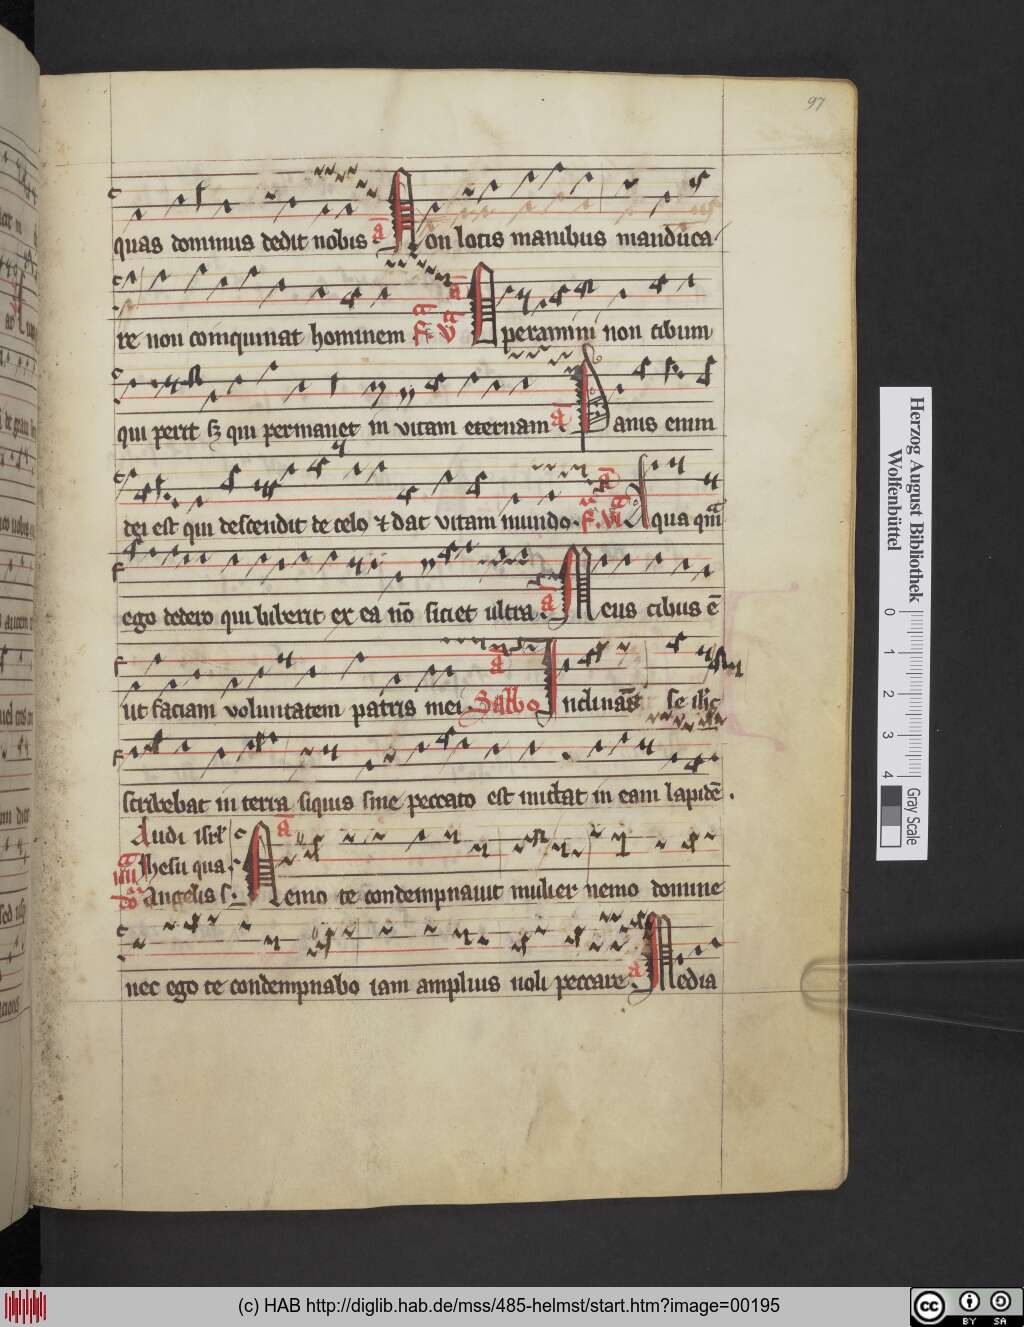 97
quas dominus dedit nobis · a Non lotis manibus manduca
re non coinquinat hominem F. V a Operamini non cibum
qui perit sz qui permanet in vitam eternam · a Panis enim
dei est qui descendit de celo ⁊ dat vitam mundo · F. VI a Aqua qm̄
ego dedero qui biberit ex ea nō siciet ultra · a Meus cibus ē
ut faciam voluntatem patris mei · Sabbo a Inclinās se ihc
scribebat in terra siquis sine peccato est mictat in eam lapidē .
Audi isrl
Ihesu qua
Angelis s. a Nemo te condempnavit mulier nemo domine
nec ego te condempnabo iam amplius noli peccare · a Media
Herzog August Bibliothek
Wolfenbüttel
0 1 2 3 4
Gray Scale
(c) HAB http://diglib.hab.de/mss/485-helmst/start.htm?image=00195
cc BY SA